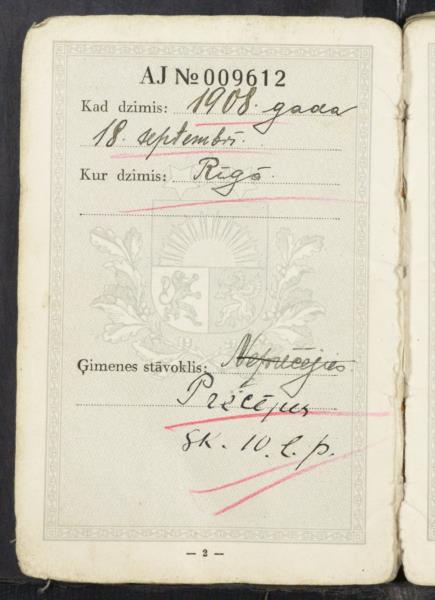 AJ № 009612
Kad dzimis: 1908. gada
18. septembrī.
Kur dzimis: Rīgā.
Ģimenes stāvoklis: Neprecējies
Precējies
sk. 10. l. p.
— 2 —